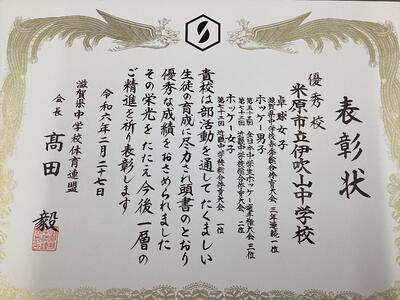 表彰状
優秀校
米原市立伊吹山中学校
卓球女子
滋賀県中学校春季総合体育大会 三年連続一位
ホッケー男子
第五十回 全日本中学生ホッケー選手権大会 三位
第七十三回 近畿中学校総合体育大会 二位
ホッケー女子
第七十三回 近畿中学校総合体育大会 一位
貴校は部活動を通してたくましい
生徒の育成に尽力され頭書のとおり
優秀な成績をおさめられました
その栄光をたたえ今後一層の
ご精進を祈り表彰します
令和六年二月二十七日
滋賀県中学校体育連盟
会長 髙田 毅